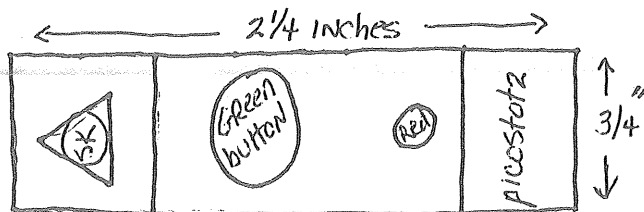 2 1/4 inches
SK
Green
button
Red
picostat2
3/4"